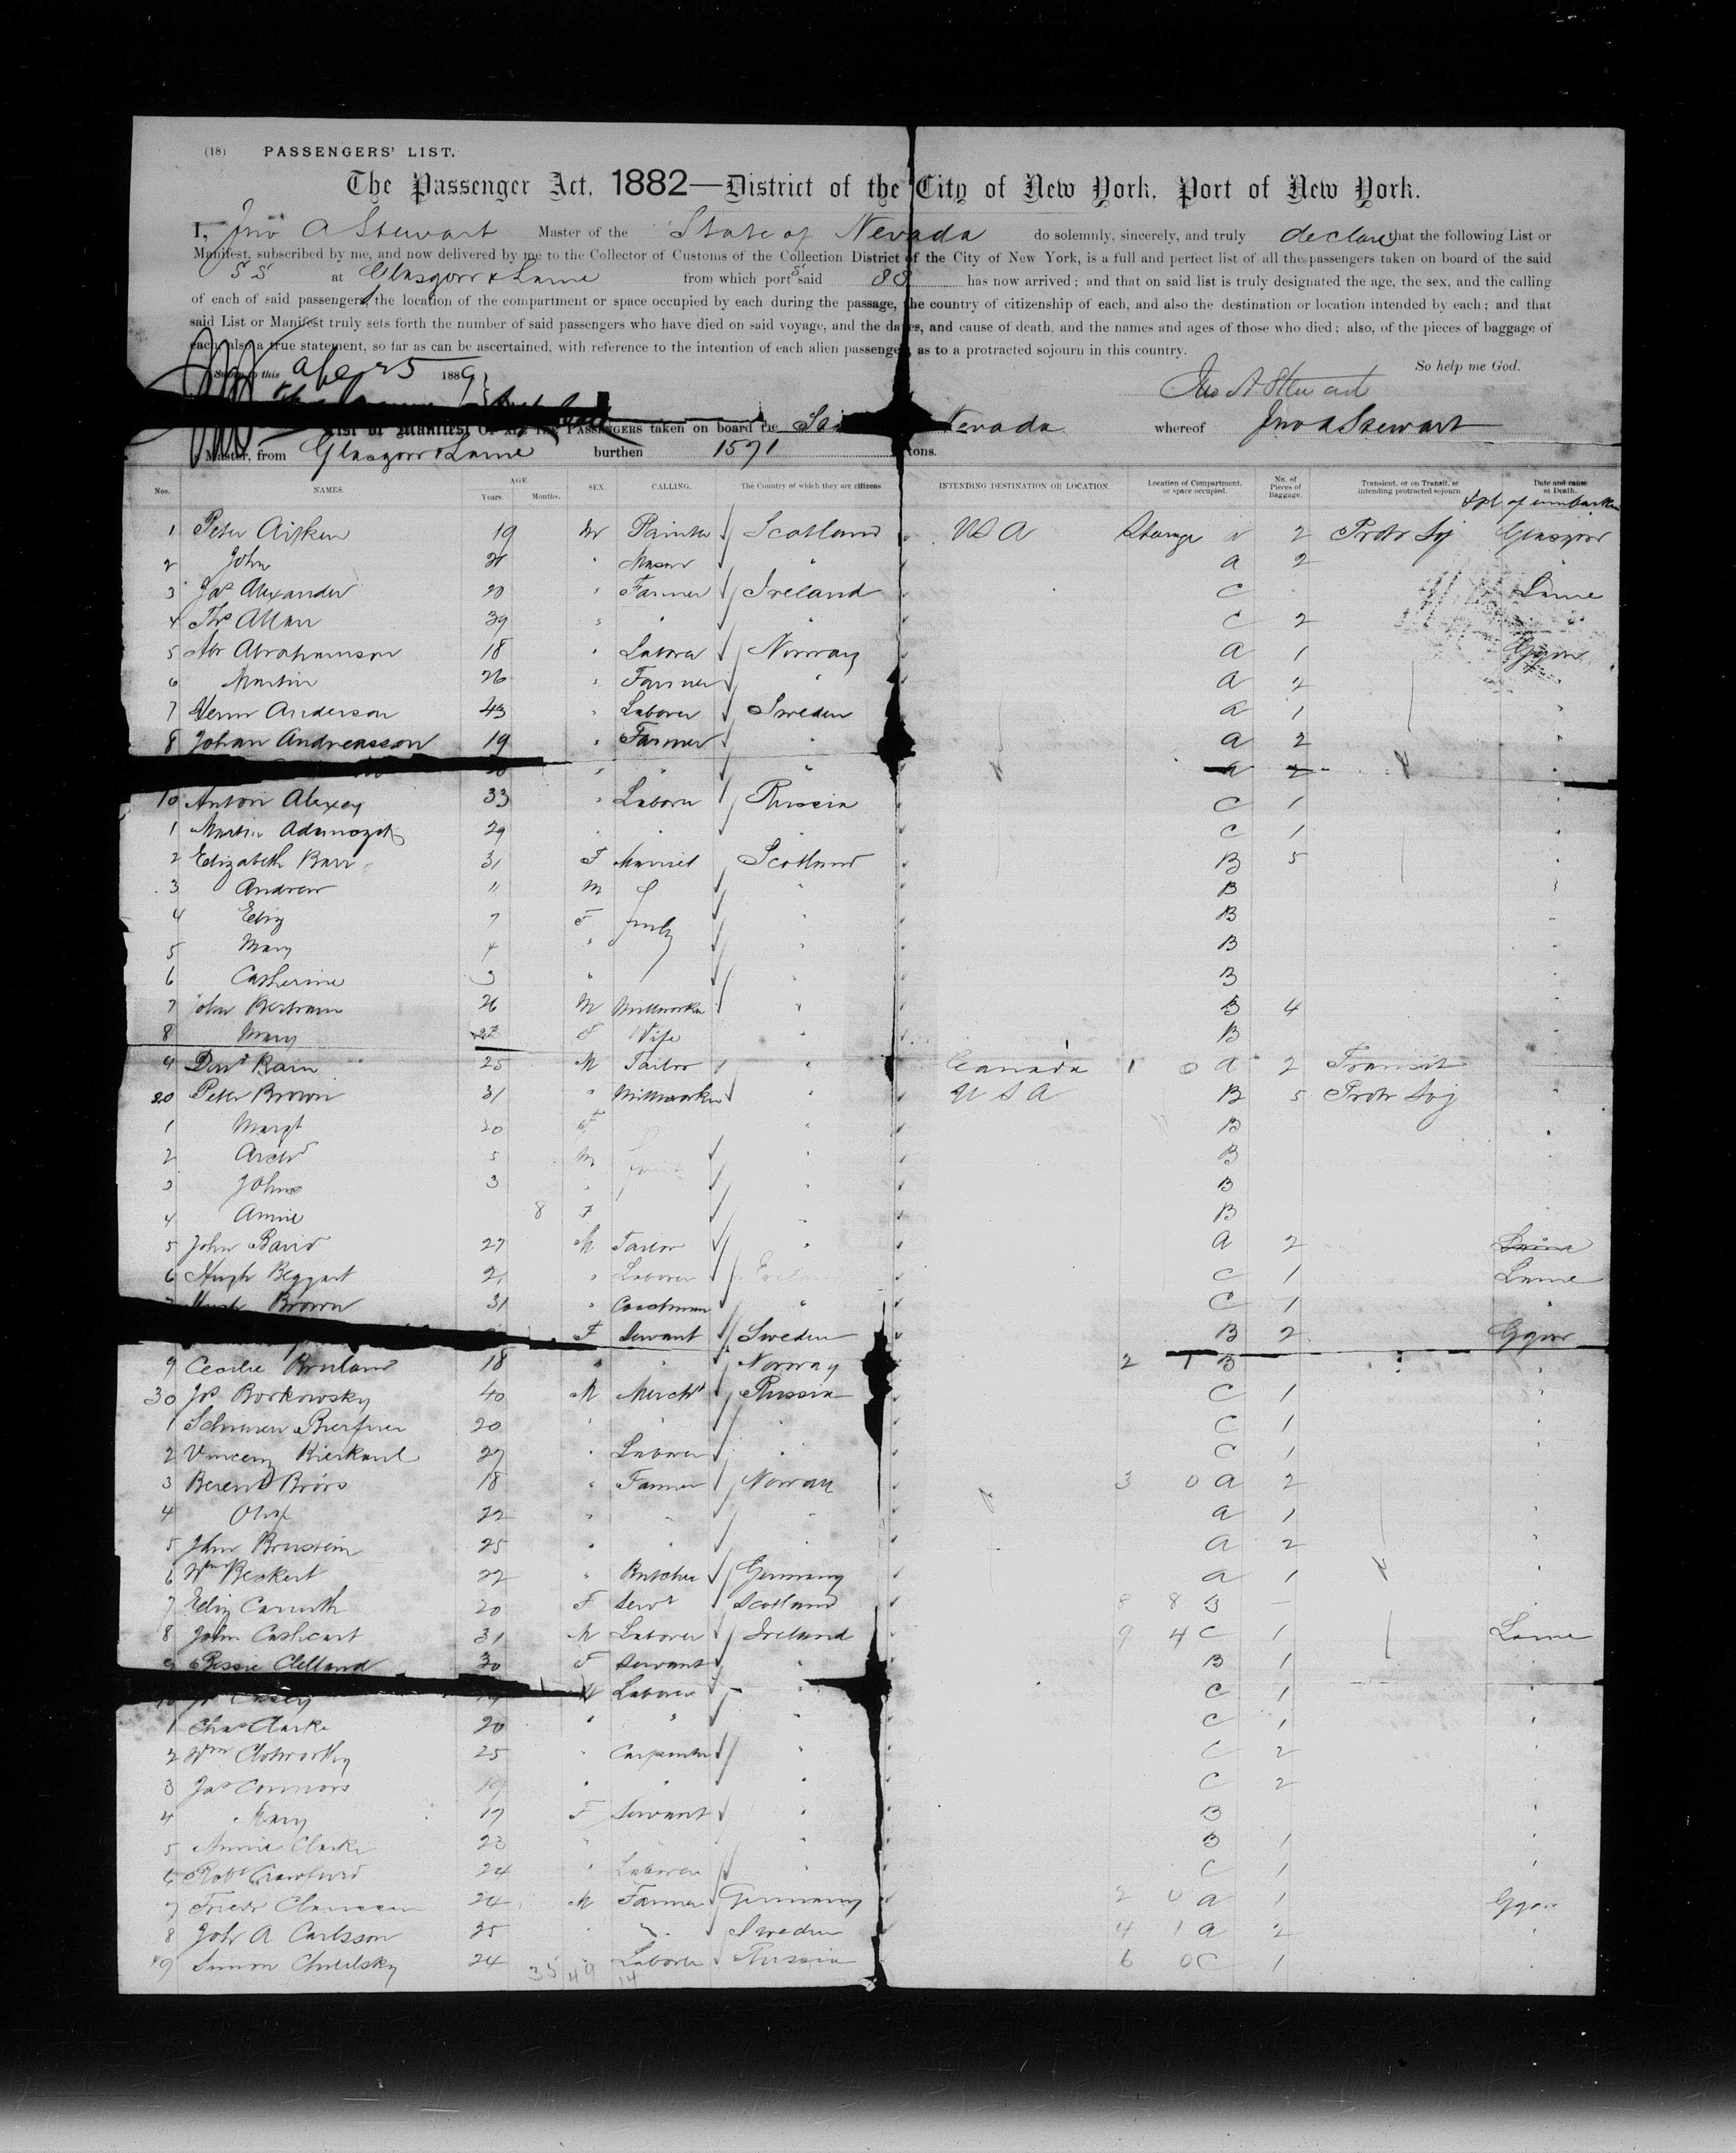 (18) PASSENGERS' LIST.
The Passenger Act, 1882—District of the City of New York, Port of New York.
I, Jno A Stewart Master of the State of Nevada do solemnly, sincerely, and truly declare that the following List or
Manifest, subscribed by me, and now delivered by me to the Collector of Customs of the Collection District of the City of New York, is a full and perfect list of all the passengers taken on board of the said
S S at Glasgow & Larne from which ports said SS has now arrived; and that on said list is truly designated the age, the sex, and the calling
of each of said passengers, the location of the compartment or space occupied by each during the passage, the country of citizenship of each, and also the destination or location intended by each; and that
said List or Manifest truly sets forth the number of said passengers who have died on said voyage, and the dates, and cause of death, and the names and ages of those who died; also, of the pieces of baggage of
each, also a true statement, so far as can be ascertained, with reference to the intention of each alien passenger, as to a protracted sojourn in this country.
So help me God.
to this 25 1889
Jno A Stewart
List or Manifest OF ALL THE PASSENGERS taken on board the Nevada whereof Jno A Stewart
Master, from Glasgow & Larne burthen 1571 tons.
Nos. NAMES. AGE Years. Months. SEX. CALLING. The Country of which they are citizens INTENDING DESTINATION OR LOCATION. Location of Compartment, or space occupied. No. of Pieces of Baggage. Transient, or on Transit, or intending protracted sojourn. Date and cause of Death.
1 Peter Aitken 19 M Painter Scotland USA Steerage 2 Protr Soj Glasgow
2 John " Mason " a 2
3 Jas Alexander 20 " Farmer Ireland C Larne
4 Ths Allan 39 " " " C 2
5 Abrahamson 18 " Laborer Norway a 1 Ggow
6 Martin 26 " Farmer " a 2
7 Anderson 43 " Laborer Sweden a 1 "
8 Johan Andreasson 19 " Farmer " a 2 "
" " " a 2 "
10 Anton Alexey 33 " Laborer Russia C 1 "
1 Martin 29 " " " C 1 "
2 Elizabeth Barr 31 F Married Scotland B 5 "
3 Andrew 11 M family " B "
4 Eliz 7 F B "
5 Mary 4 " " B "
6 Catherine 3 " " B
7 John Bertram 26 M Millworker " B 4 "
8 Mary F Wife " B "
9 Bain 25 M Tailor " Canada 1 0 a 2 Transit
20 Peter Brown 31 " Millworker " USA B 5 Protr Soj "
1 Margt 20 F " B "
2 Archd 5 M B "
3 John 3 " " B
4 Annie 8 F " B
5 John Baird 27 M Tailor " a 2 Larne
6 Hugh Beggart " Laborer C 1 Larne
Brown 31 " Coachman " C 1 "
F Servant Sweden B 2 Ggow
9 Cecilie 18 " " Norway 2 1 B "
30 Js Borkowsky 40 M Mercht Russia C 1 "
1 20 " " " C 1 "
2 27 " Laborer " C 1 "
3 Berent 18 " Farmer Norway 3 0 a 2
4 Olaf 22 " " " a 1 "
5 25 " " " a 2 "
6 Wm Beckert 22 " Butcher Germany a 1 "
7 Eliz Carruth 20 F Servt Scotland 8 8 B —
8 John Cathcart 31 M Laborer Ireland 9 4 C 1 Larne
9 Bessie Clelland 30 F Servant " B 1 "
Casey Laborer " C 1
1 Chas Clarke 20 " " " C 1 "
2 Wm Clotworthy 25 " Carpenter " C 2 "
3 Jas Connors 19 " " " C 2
4 " Mary 17 F Servant " B "
5 Annie Clarke 23 " " B 1 "
6 Robt Crawford 24 " Laborer C 1 "
7 24 M Farmer Germany 2 0 a 1 Ggow
8 Joh A Carlsson 25 " " Sweden 4 1 a 2 "
49 Simon 24 " Laborer Russia 6 0 C 1 "
35 49 14